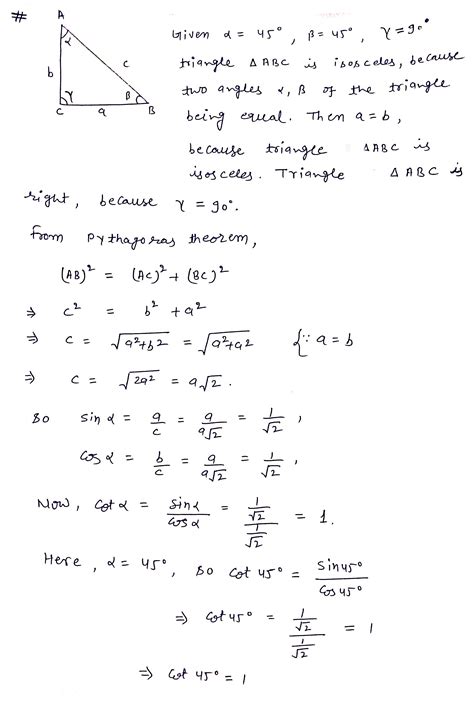 #
A
α
b
c
γ
β
C
a
B
Given α = 45°, β = 45°, γ = 90°
triangle ΔABC is isosceles, because
two angles α, β of the triangle
being equal. Then a = b,
because triangle ΔABC is
isosceles. Triangle ΔABC is
right, because γ = 90°.
from pythagoras theorem,
(AB)² = (AC)² + (BC)²
⇒ c² = b² + a²
⇒ c = √(a²+b²) = √(a²+a²) {∵ a = b
⇒ c = √(2a²) = a√2.
So sin α = a/c = a/(a√2) = 1/√2,
Cos α = b/c = a/(a√2) = 1/√2,
Now, Cot α = Sinα/Cosα = (1/√2)/(1/√2) = 1.
Here, α = 45°, So Cot 45° = Sin45°/Cos45°
⇒ Cot 45° = (1/√2)/(1/√2) = 1
⇒ Cot 45° = 1